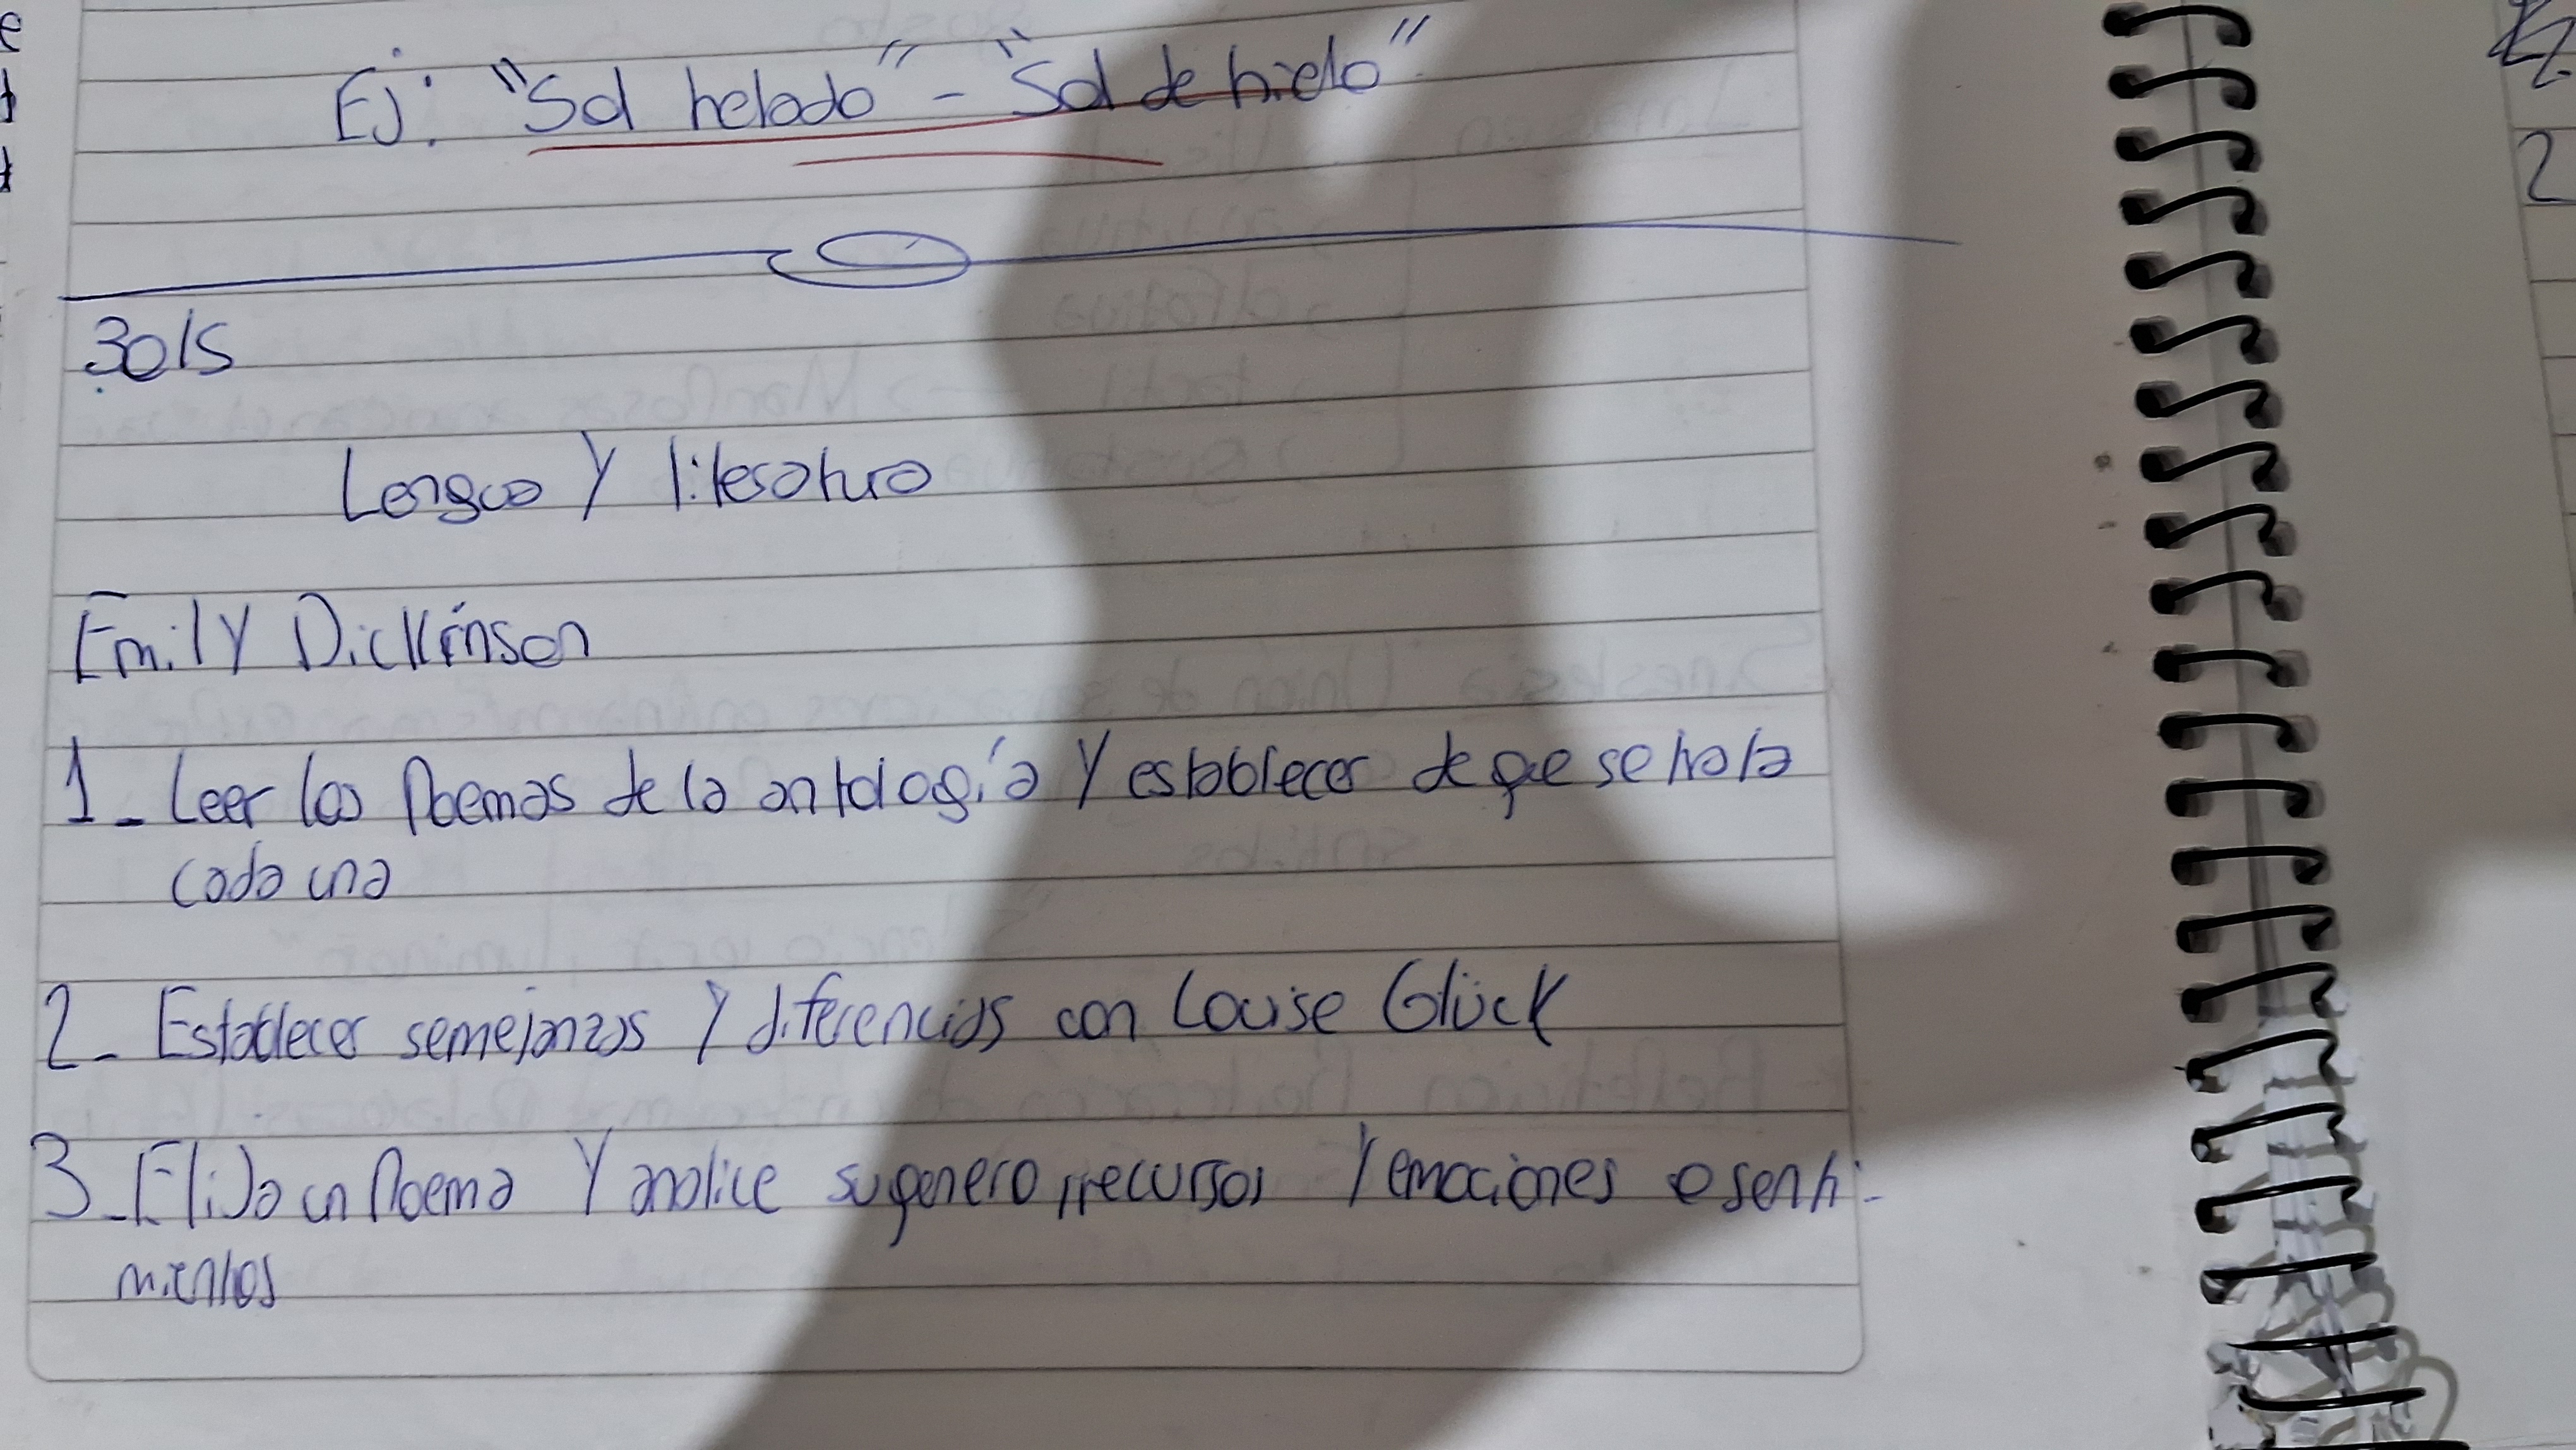 Ej: "Sol helado" - "Sol de hielo"
30/5
Lengua Y literatura
Emily Dickinson
1_ Leer los Poemas de la antología Y establecer de que se trata
cada una
2_ Establecer semejanzas Y diferencias con Louise Glück
3_ Elija un Poema Y analice su genero, recursos Y emociones o senti-
mientos
2